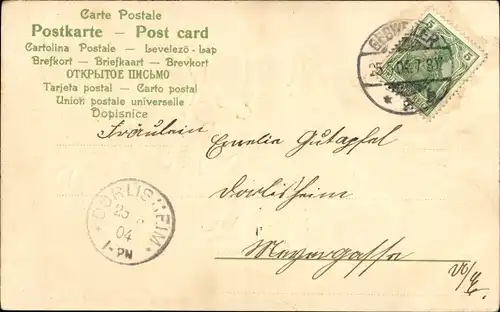 Carte Postale
Postkarte — Post card
Cartolina Postale — Levelező-Lap
Brefkort — Briefkaart — Brevkort
ОТКРЫТОЕ ПИСЬМО
Tarjeta postal — Carto postal
Union postale universelle
Dopisnice
GEBWEILER
25 04. 7
5 5
Fräulein Emelia Gutapfel
Dorlisheim
Meyergasse
DORLISHEIM
25
04
1-2N